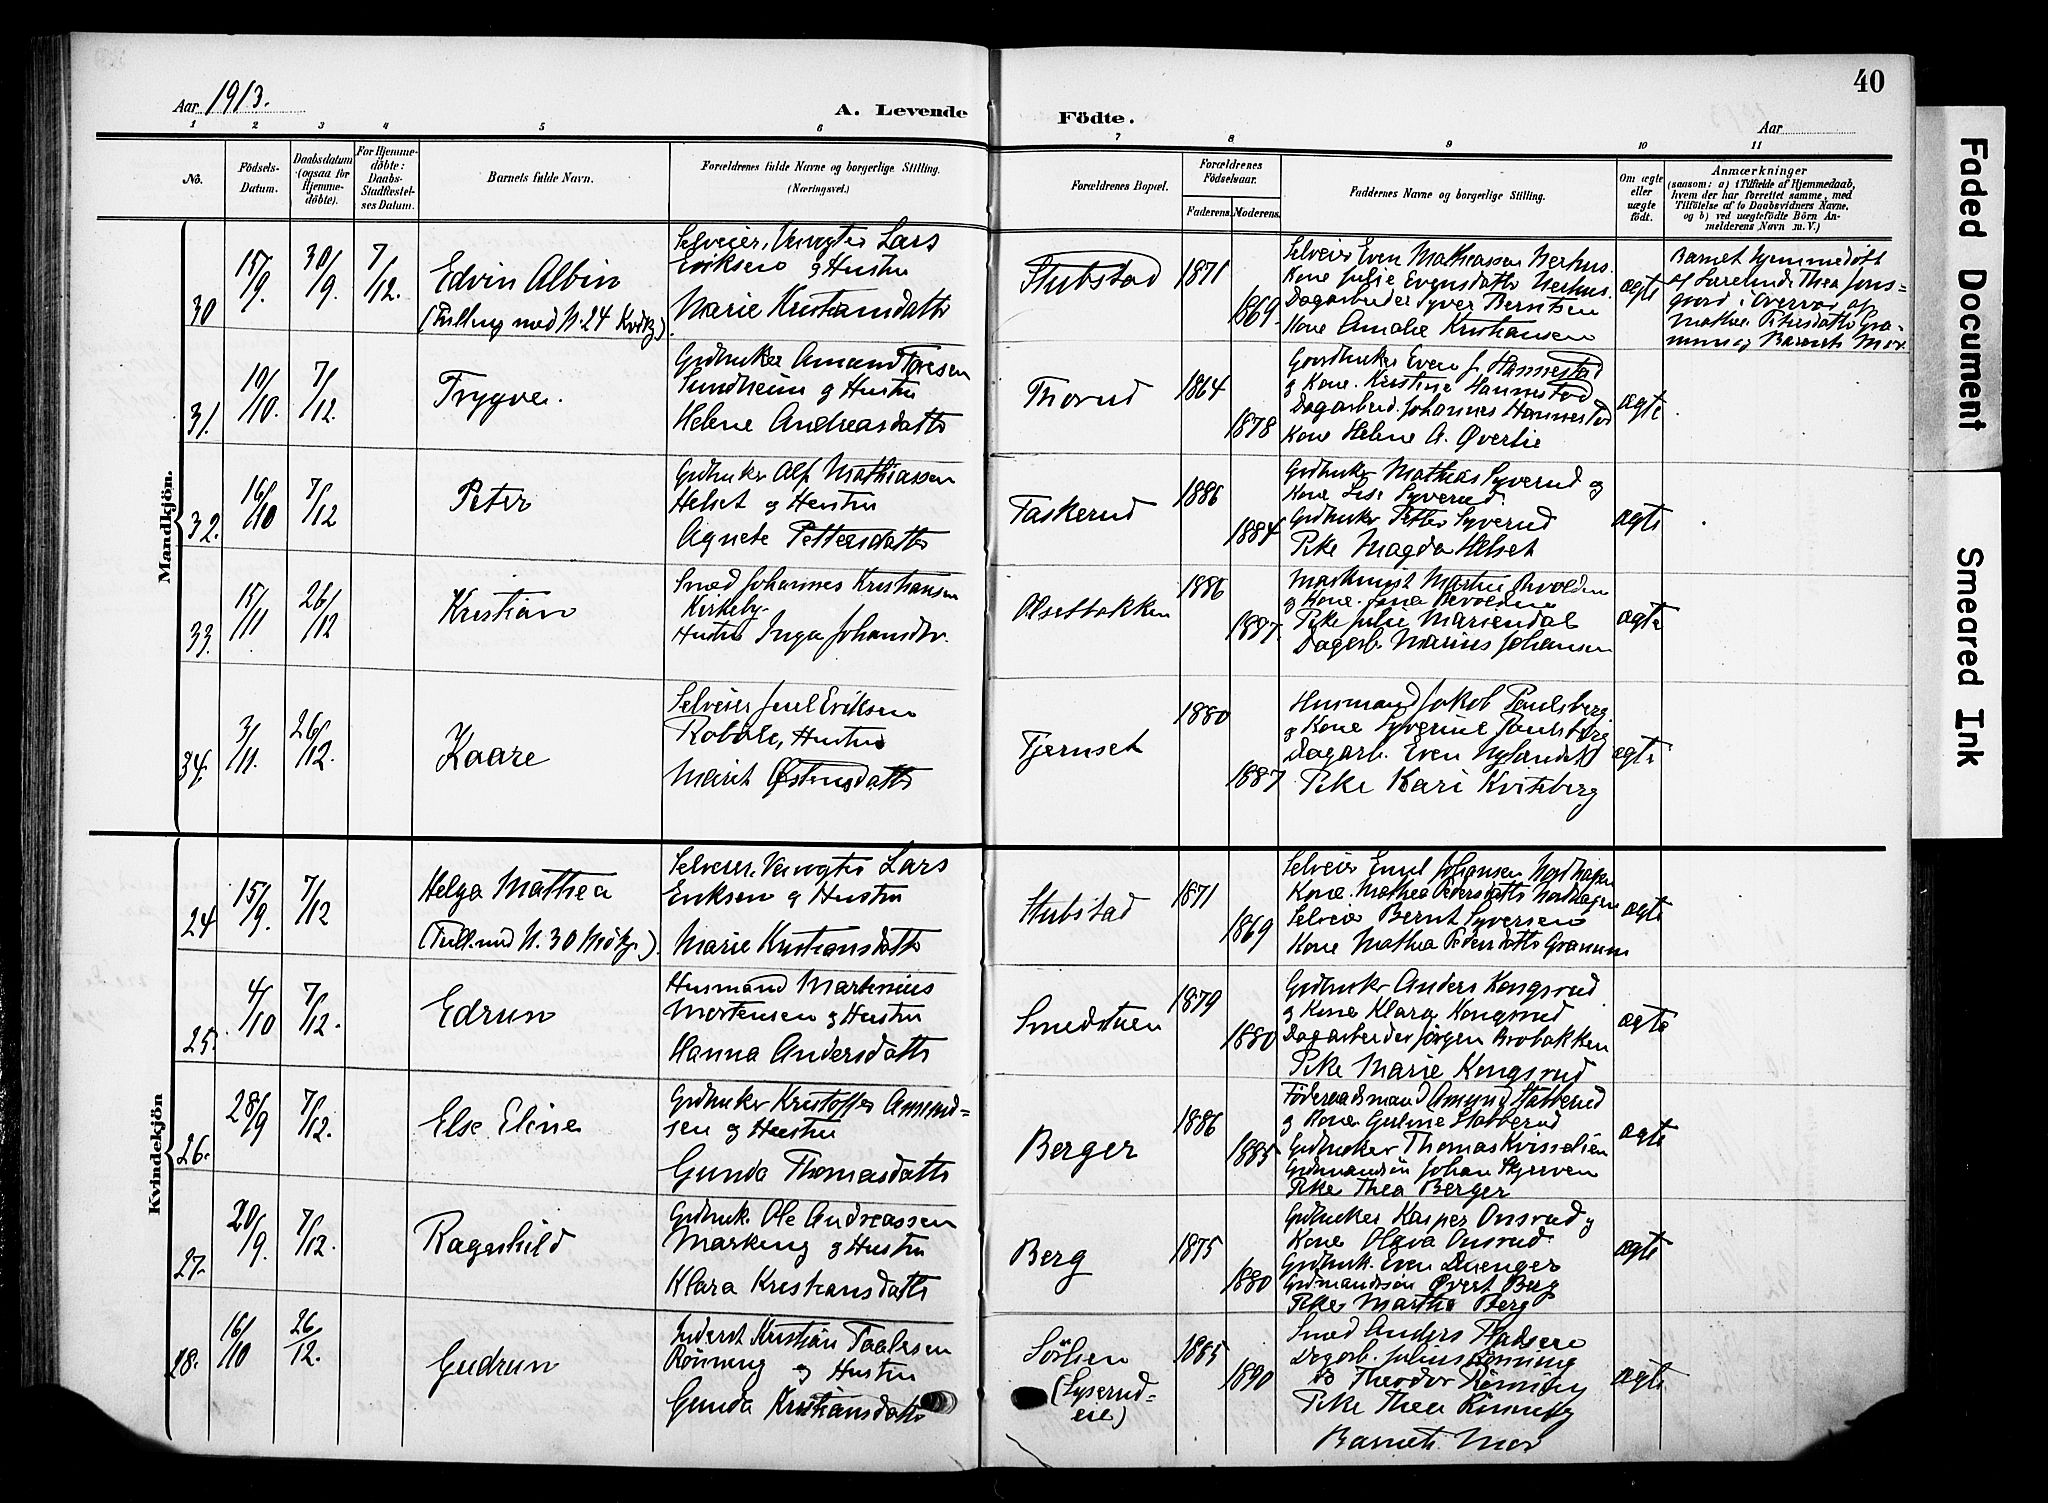 40
Aar 1913.
A. Levende Födte.
Aar
1 2 3 4 5 6 7 8 9 10 11
No.
Födsels-
Datum.
Daabsdatum
(ogsaa for
Hjemme-
döbte).
For Hjemme-
döbte:
Daabs-
Stadfestel-
ses Datum.
Barnets fulde Navn.
Forældrenes fulde Navne og borgerlige Stilling.
(Næringsvei.)
Forældrenes Bopæl.
Forældrenes
Födselsaar.
Faderens. Moderens.
Faddernes Navne og borgerlige Stilling.
Om ægte
eller
uægte
født.
Anmærkninger
(saasom: a) i Tilfælde af Hjemmedaab,
hvem der har forrettet samme, med
Tilföielse af to Daabsvidners Navne.
og b) ved uægtefödte Börn An-
melderens Navn m. V.)
Mandkjön.
30
15/9.
30/9.
7/12.
Edvin Albin
(Tvilling med N. 24 Kvkj.)
Selveier, Lars
Eriksen og Hustru
Marie Kristiansdatter
Stubstad
1871
1869
Selveier Even Mathiassen Nerhus.
Kone Julie Evensdatter Nerhus.
Dagarbeider Syver Berntsen
Kone Amalie Kristiansen
ægte
Barnet hjemmedöbt
af Thea Jons-
gaard i Overvær af
Mathea Pedersdatter Gra-
num og Barnets Mor.
31.
10/10.
7/12.
Trygve.
Grdbruker Amand Toresen
Sundheim og Hustru
Helene Andreasdatter
Thorud
1864
1878
Gaardbruker Even J. Hannestad
og Kone Kristine Hannestad
Dagarbeid. Johannes Hannestad
Kone Helene A. Øverlie
ægte
32.
16/10
7/12
Peter
Grdbruker Alf Mathiassen
Helset og Hustru
Agnete Pettersdatter
Taskerud
1886
1884
Grdbruker Mathias Syverud og
Kone Lise Syverud.
Grdbruker Petter Syverud
Pike Magda Helset
ægte
33.
15/11
26/12
Kristian
Smed Johannes Kristiansen
Kirkeby.
Hustru Inga Johansdtr.
Olsetbakken
1886
1887.
Maskinist Martin
og Kone
Pike Julie Mariendal
Dagarb. Marius Johansen
ægte
34.
3/11.
26/12.
Kaare
Selveier Juul Eriksen
Robøle, Hustru
Marit Østensdatter
Tjernset
1880
1887
Husmand Jakob Paulsberg.
og Kone Syverine Paulsberg
Dagarb. Even Nylandet
Pike Kari Kvitberg
ægte
Kvindekjön
24
15/9.
7/12
Helga Mathea
(Tvill. med N. 30 Mdkj.)
Selveier, Lars
Eriksen og Hustru
Marie Kristiansdatter
Stubstad
1871
1869
Selveier Emil Johansen Nordhagen
Kone Mathea Pedersdatter Nordhagen
Selveier Bernt Syversen
Kone Mathea Pedersdatter Granum
ægte
25.
4/10
7/12.
Edrun
Husmand Martinius
Mortensen og Hustru
Hanna Andersdatter
Smedstuen
1879
1880
Grdbruker Anders Kongsrud
og Kone Klara Kongsrud
Dagarbeider Jörgen Brobakken
Pike Marie Kongsrud
ægte
26.
28/9
7/12.
Else Eline
Grdbruker Kristoffer Amund=
sen og Hustru
Gunda Thomasdatter
Berger
1886
1885
Föderaadsmand Amund Stabberud
og Kone Guline Stabberud
Grdbruker Thomas Kvisselien
Grdmandsön Johan Skjerven
Pike Thea Berger
ægte
27.
20/9.
7/12.
Ragnhild
Grdbruk. Ole Andreassen
Markeng og Hustru
Klara Kristiansdatter
Berg
1875
1880
Grdbruker Kasper Onsrud og
Kone Olava Onsrud.
Grdbruk. Even
Grdmandssön Øvert Berg
Pike Martha Berg
ægte
28.
16/10
26/12.
Gudrun
Inderst Kristian Paulsen
Rönning og Hustru
Gunda Kristiansdatter
Sörlien
(Lyserud-
eie)
1885
1890
Smed Anders
Dagarb. Julius Rönning
Do Theodor Rönning
Pike Thea Rönning
Barnets Mor
ægte
Faded Document
Smeared Ink